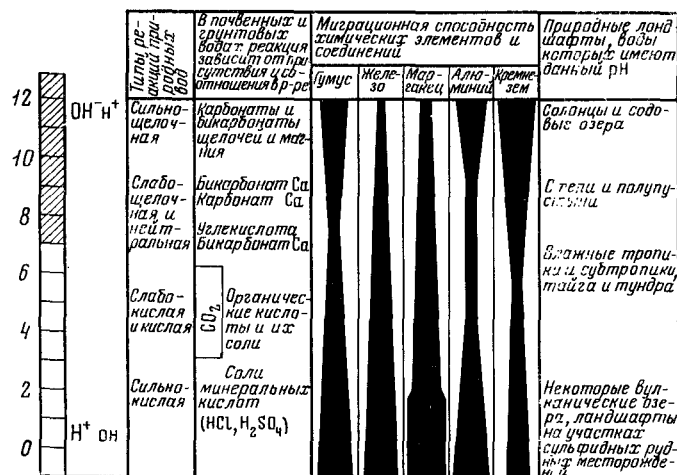 Типы, ре-
акций при-
родных
вод
В почвенных и
грунтовых
водах реакция
зависит от при-
сутствия и со-
отношения в р-ре
Миграционная способность
химических элементов и
соединений
Гумус
Желе-
зо
Мар-
ганец
Алю-
миний
Кремне-
зем
Природные ланд-
шафты, воды
которых имеют
данный pH
12
10
8
6
4
2
0
OH⁻ H⁺
H⁺ OH
Сильно-
щелоч-
ная
Карбонаты и
бикарбонаты
щелочей и маг-
ния
Солонцы и содо-
вые озера
Слабо-
щелоч-
ная и
нейт-
ральная
Бикарбонат Ca
Карбонат Ca
Углекислота
Бикарбонат Ca
Степи и полупу-
стыни
Слабо-
кислая
и кислая
CO₂
Органичес-
кие кисло-
ты и их
соли
Влажные тропи-
ки и субтропики,
тайга и тундра
Сильно-
кислая
Соли
минеральных
кислот
(HCl, H₂SO₄)
Некоторые вул-
канические озе-
ра, ландшафты
на участках
сульфидных руд-
ных месторожде-
ний